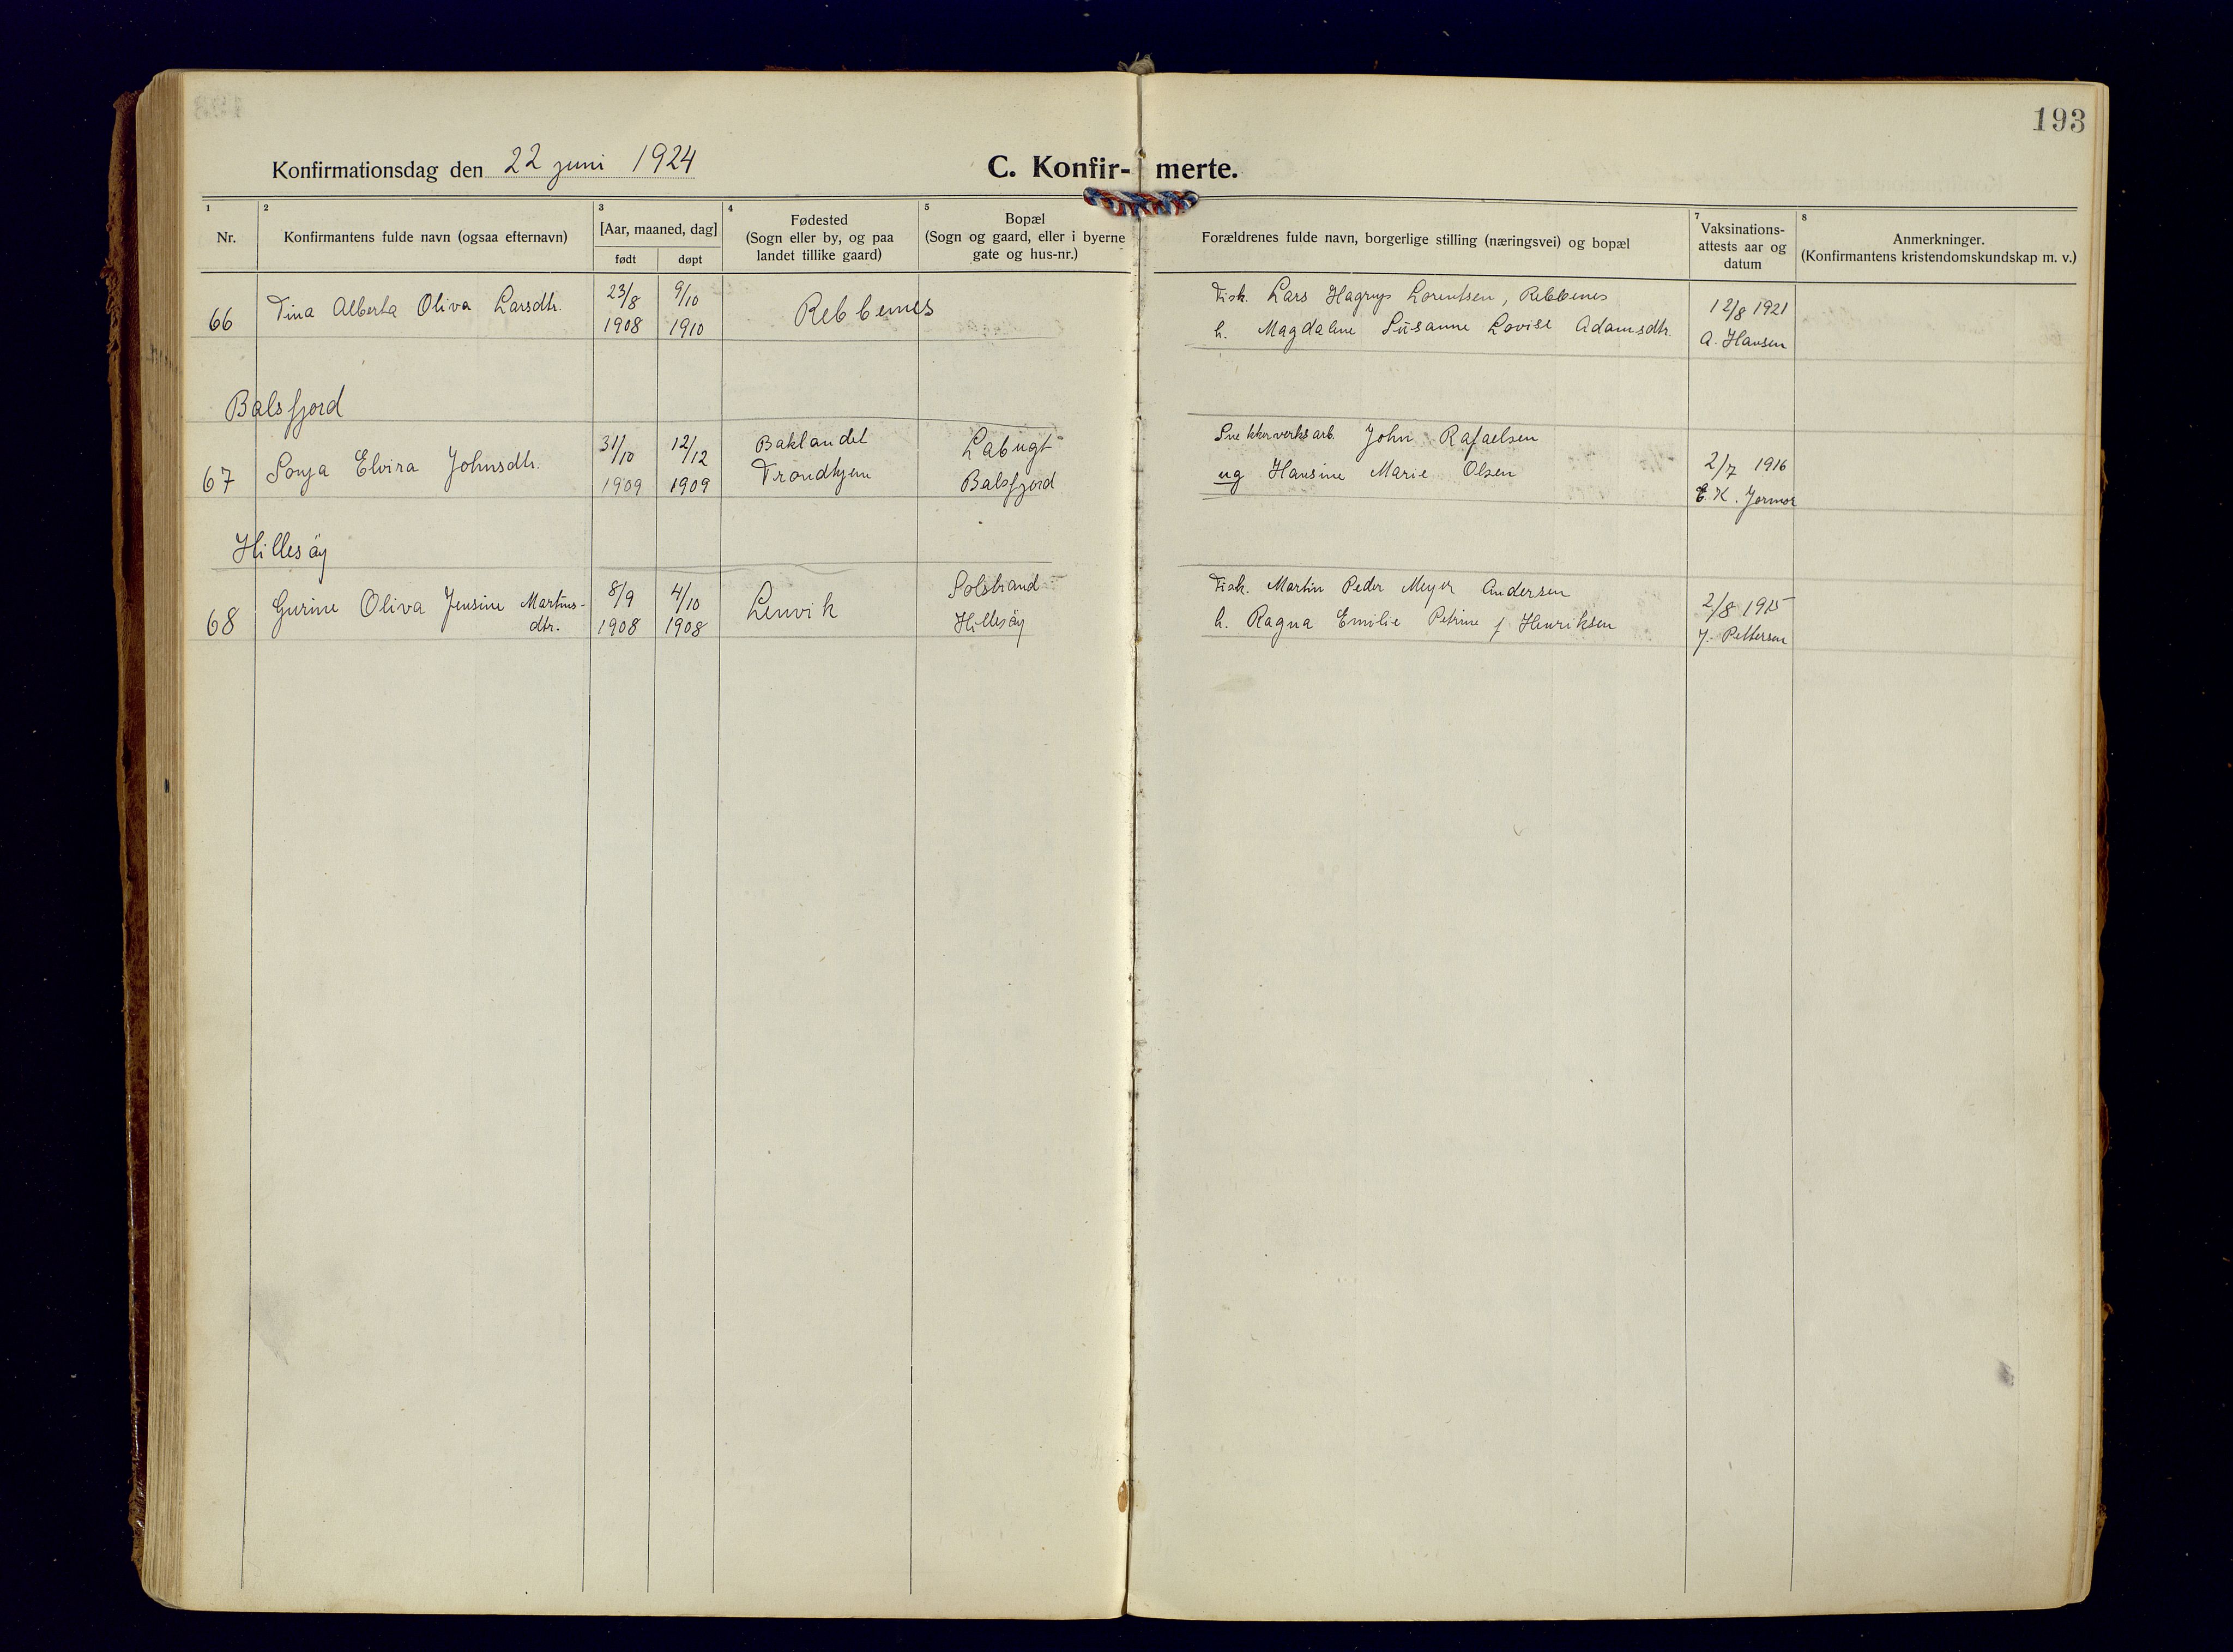 193
Konfirmationsdag den 22 juni 1924
C. Konfir- merte.
1 2 3 4 5 7 8
Nr.
Konfirmantens fulde navn (ogsaa efternavn)
[Aar, maaned, dag]
født døpt
Fødested
(Sogn eller by, og paa
landet tillike gaard)
Bopæl
(Sogn og gaard, eller i byerne
gate og hus-nr.)
Forældrenes fulde navn, borgerlige stilling (næringsvei) og bopæl
Vaksinations-
attests aar og
datum
Anmerkninger.
(Konfirmantens kristendomskundskap m. v.)
66 Tina Alberta Oliva Larsdtr. 23/8 9/10 Rebbenes Fisk. Lars Hagrup Lorentsen, Rebbenes 12/8 1921
1908 1910 h. Magdalene Susanne Lovise Adamsdtr. A. Hansen
Balsfjord
67 Sonja Elvira Johnsdtr. 31/10 12/12 Baklandet Labugt Snekkerverksarb. John Rafaelsen 2/7 1916
1909 1909 Trondhjem Balsfjord ug Hansine Marie Olsen E. K.
Hillesøy
68 Gurine Oliva Jensine Martins- 8/9 4/10 Lenvik Solstrand Fisk. Martin Peder Meyer Andersen 2/8 1915
dtr. 1908 1908 Hillesøy h. Ragna Emilie Petrine f Henriksen J. Pettersen